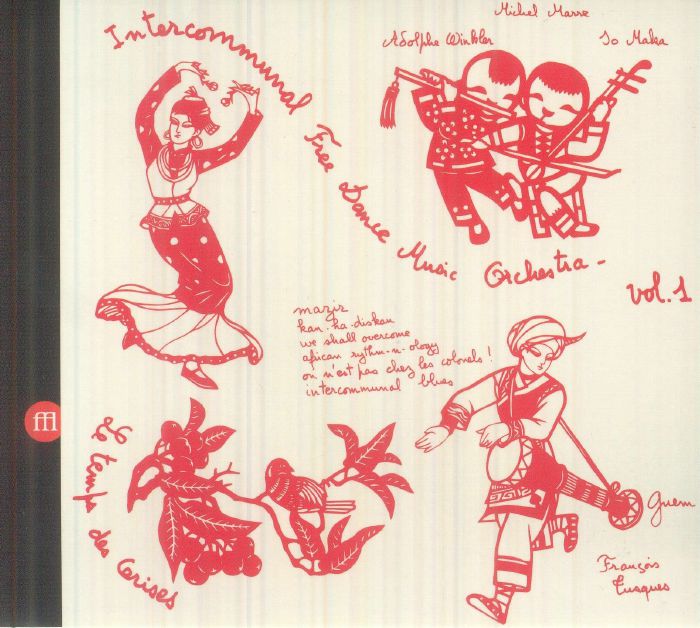 Michel Marre
Adolphe Winkler
Jo Maka
Intercommunal Free Dance Music Orchestra -
vol. 1
maziz
kan-ha-diskan
we shall overcome
african rythm-n-ology
on n'est pas chez les colonels!
intercommunal blues
ffl
Le temps des Cerises
Guem
François
Tusques